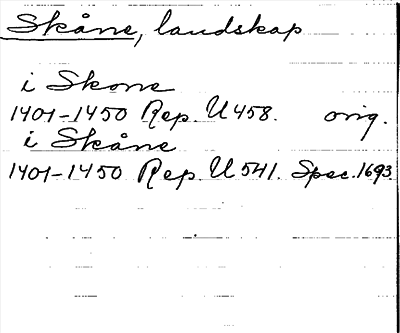 Skåne, landskap
i Skone
1401-1450 Rep. U 458. orig.
i Skåne
1401-1450 Rep. U 541. Spec. 1693